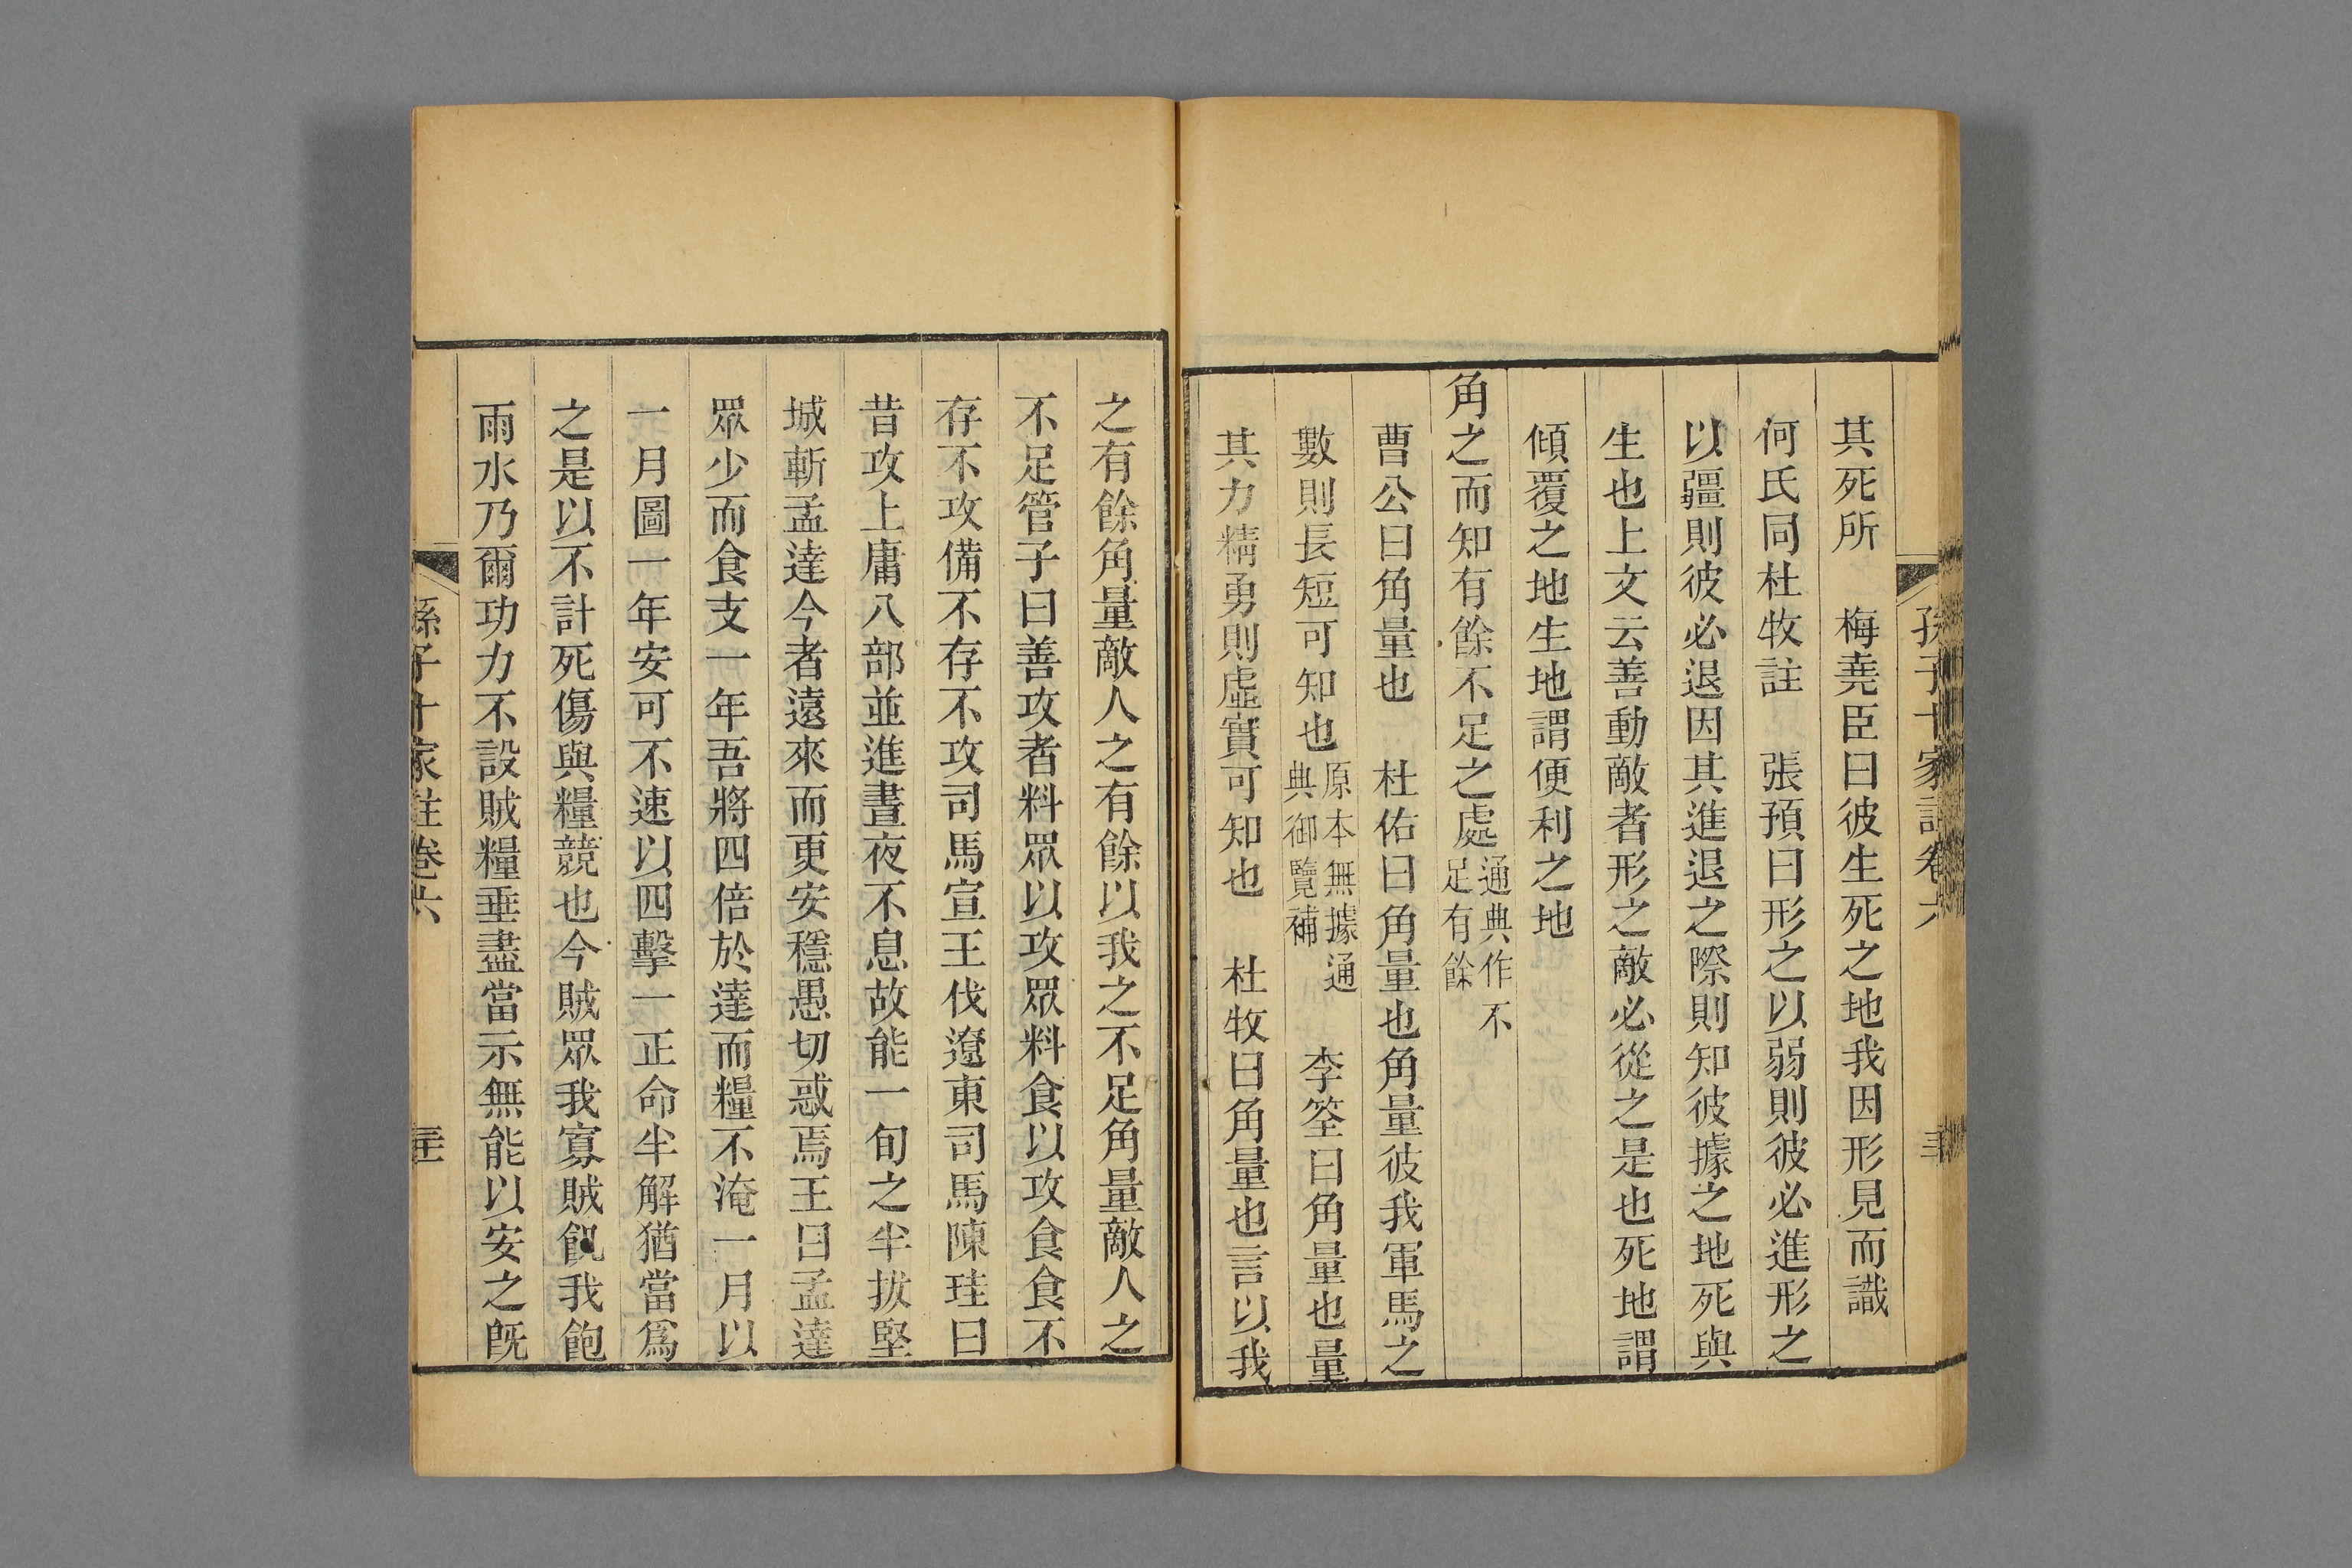 孫子十家註卷六
其死所　梅堯臣曰彼生死之地我因形見而識
何氏同杜牧註　張預曰形之以弱則彼必進形之
以彊則彼必退因其進退之際則知彼據之地死與
生也上文云善動敵者形之敵必從之是也死地謂
傾覆之地生地謂便利之地
角之而知有餘不足之處通典作不
足有餘
曹公曰角量也　杜佑曰角量也角量彼我軍馬之
數則長短可知也原本無據通
典御覽補　李筌曰角量也量
其力精勇則虛實可知也　杜牧曰角量也言以我
之有餘角量敵人之有餘以我之不足角量敵人之
不足管子曰善攻者料眾以攻眾料食以攻食食不
存不攻備不存不攻司馬宣王伐遼東司馬陳珪曰
昔攻上庸八部並進晝夜不息故能一旬之半拔堅
城斬孟達今者遠來而更安穩愚切惑焉王曰孟達
眾少而食支一年吾將四倍於達而糧不淹一月以
一月圖一年安可不速以四擊一正命半解猶當為
之是以不計死傷與糧競也今賊眾我寡賊飢我飽
雨水乃爾功力不設賊糧垂盡當示無能以安之既
孫子十家註卷六